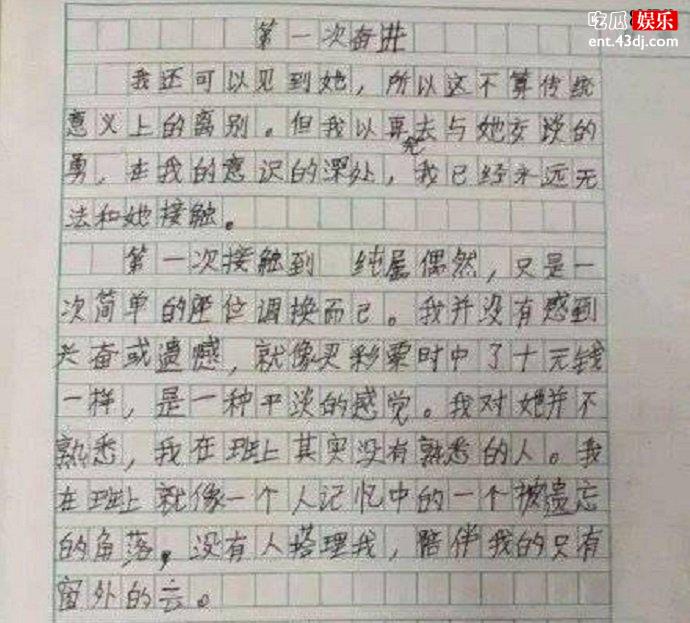 吃瓜 娱乐
ent.43dj.com
第一次奋进
我还可以见到她，所以这不算传统
意义上的离别。但我以再无去与她交谈的
勇，在我的意识的深处，我已经永远无
法和她接触。
第一次接触到 纯属偶然，只是一
次简单的座位调换而已。我并没有感到
兴奋或遗憾，就像买彩票时中了十元钱
一样，是一种平淡的感觉。我对她并不
熟悉，我在班上其实没有熟悉的人。我
在班上就像一个人记忆中的一个被遗忘
的角落，没有人搭理我，陪伴我的只有
窗外的云。